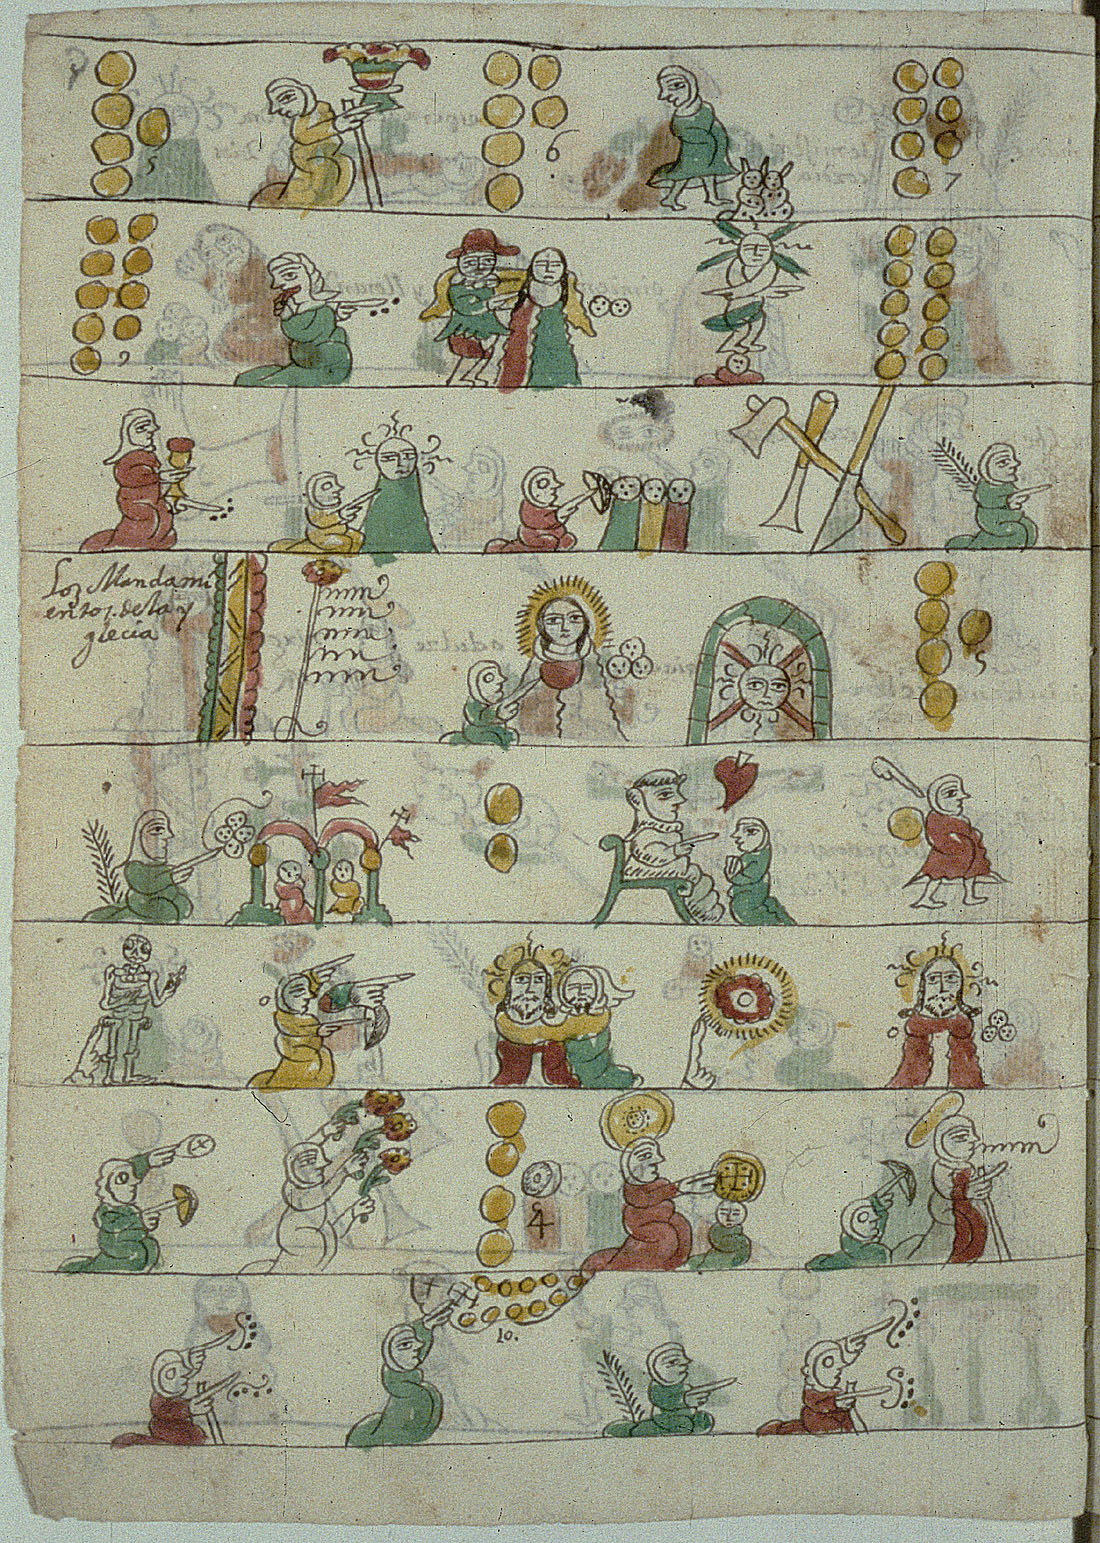 5
6
7
9
Los Mandami
entos. de la y
glecia
5
4
10.